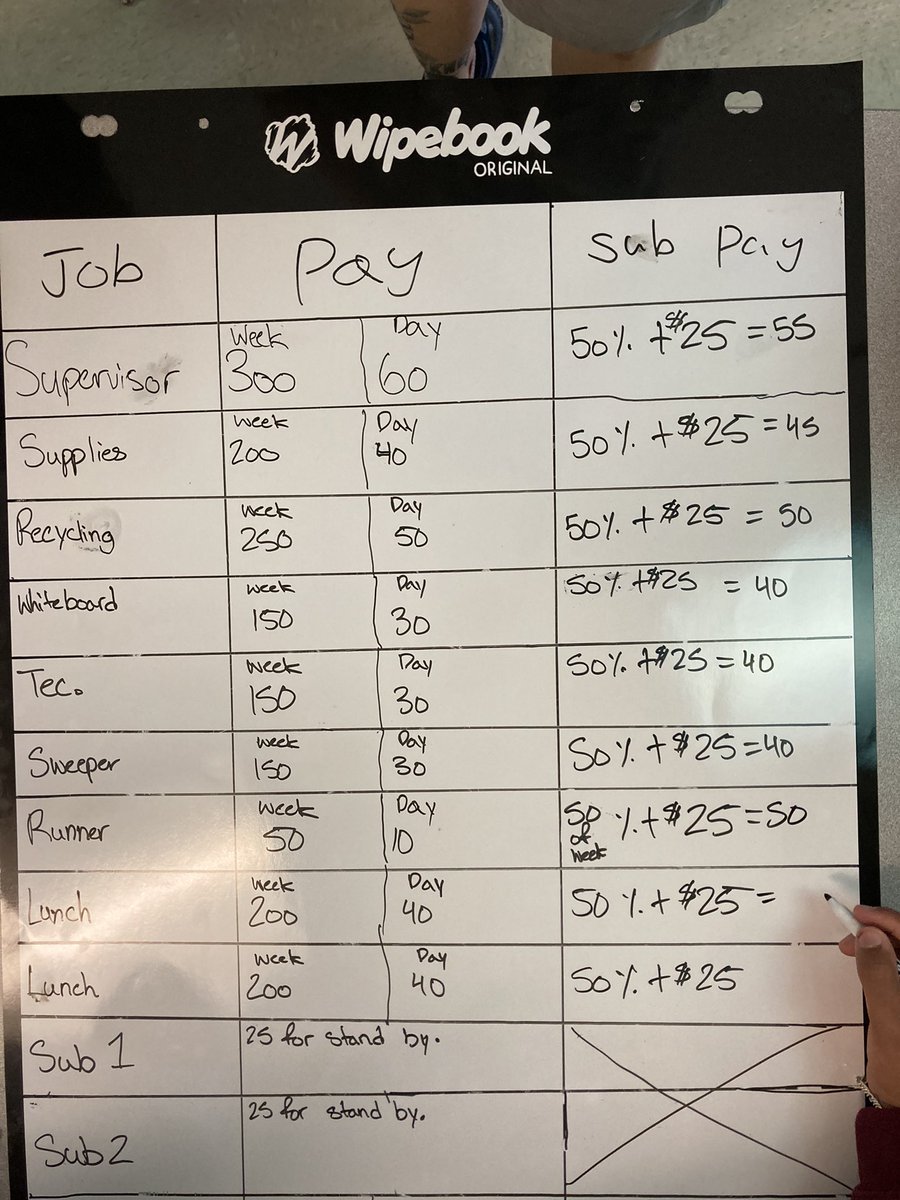 Wipebook
ORIGINAL
Job Pay Sub Pay
Supervisor Week 300 Day 60 50% + $25 = 55
Supplies Week 200 Day 40 50% + $25 = 45
Recycling Week 250 Day 50 50% + $25 = 50
Whiteboard Week 150 Day 30 50% + $25 = 40
Tec. Week 150 Day 30 50% + $25 = 40
Sweeper Week 150 Day 30 50% + $25 = 40
Runner Week 50 Day 10 50 of week % + $25 = 50
Lunch Week 200 Day 40 50% + $25 =
Lunch Week 200 Day 40 50% + $25
Sub 1 25 for stand by.
Sub 2 25 for stand by.